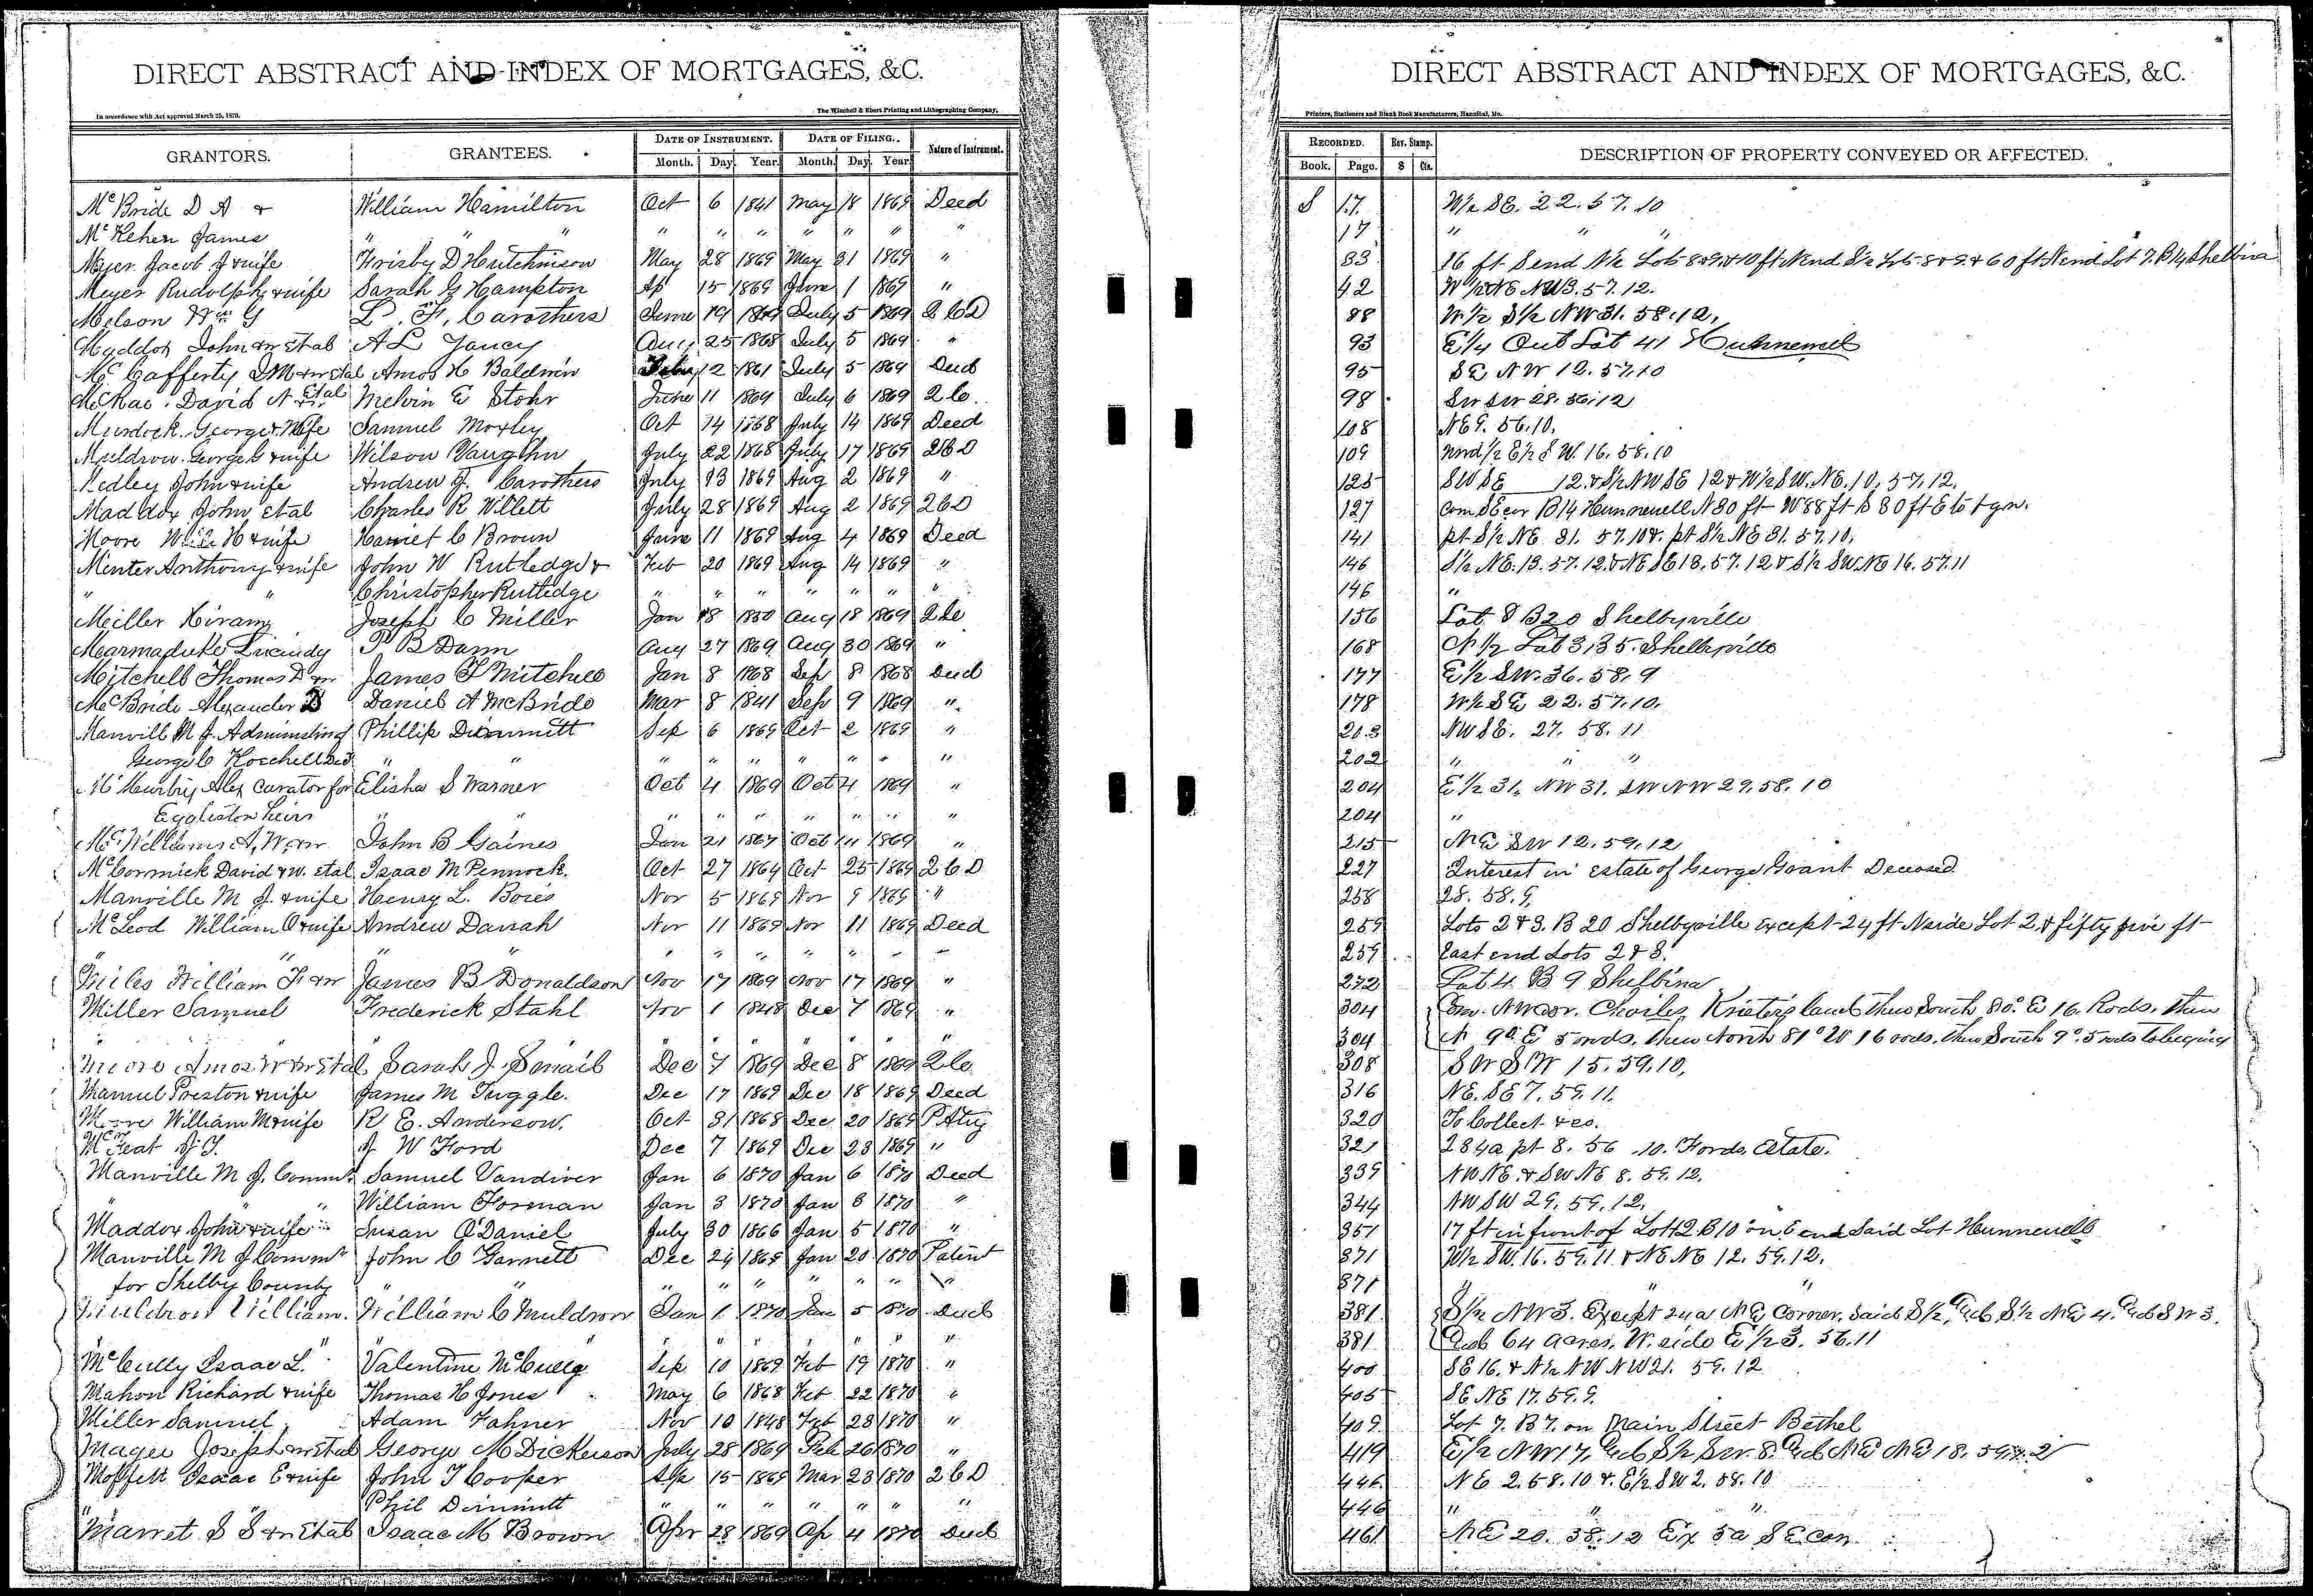 DIRECT ABSTRACT AND INDEX OF MORTGAGES, &C.
In accordance with Act approved March 25, 1870.
The Winchell & Ebert Printing and Lithographing Company,
GRANTORS. GRANTEES. DATE OF INSTRUMENT. DATE OF FILING. Nature of Instrument.
Month. Day. Year. Month. Day. Year.
McBride D A & William Hamilton Oct 6 1841 May 18 1869 Deed
McKehen James " " " " " " " " "
Meyer Jacob J & wife Frisby D Hutchinson May 28 1869 May 31 1869 "
Meyer Rudolph & wife Sarah G Hampton Ap 15 1869 June 1 1869 "
Melson Wm G L. F. Carothers June 19 July 5 1869 Q C D
Maddox John & w Etal A L Yancy Aug 25 1868 July 5 1869 "
McCafferty & w etal Amos H Baldwin 12 1861 July 5 1869 Deed
McRae David A Etal Melvin E Stohr June 11 1869 July 6 1869 Q C
Murdock George & Wife Samuel Moxley Oct 14 1868 July 14 1869 Deed
Muldrow George & wife Wilson Vaughn July 22 1868 July 17 1869 Q C D
Medley John & wife Andrew J. Carothers July 13 1869 Aug 2 1869 "
Maddox John etal Charles R Willett July 28 1869 Aug 2 1869 Q C D
Moore H & wife Harriet C Brown June 11 1869 Aug 4 1869 Deed
Minter Anthony & wife John W Rutledge & Feb 20 1869 Aug 14 1869 "
" " Christopher Rutledge " " " " " " "
Miller Hiram Joseph C Miller Jan 18 1850 Aug 18 1869 Q C
Marmaduke Lucindy P B Dunn Aug 27 1869 Aug 30 1869 "
Mitchell Thomas D & w James F Mitchell Jan 8 1868 Sep 8 1868 Deed
McBride Alexander Daniel A McBride Mar 8 1841 Sep 9 1869 "
Manvill M J. Adminisling Phillip Dimmitt Sep 6 1869 Oct 2 1869 "
George C Koschell Decd " " " " " " " " "
Alex Curator for Elisha S Warner Oct 4 1869 Oct 4 1869 "
Eggleston heirs " " " " " " " " "
McWilliams A. W. & w John B Gaines Jan 21 1867 Oct 1869 "
McCormick David & w. etal Isaac M Pennock. Oct 27 1864 Oct 25 1869 Q C D
Manville M J. & wife Henry L. Boies Nov 5 1869 Nov 9 1869 "
McLeod William O & wife Andrew Darrah Nov 11 1869 Nov 11 1869 Deed
" " " " " " " " "
Miles William F & w James B Donaldson Nov 17 1869 Nov 17 1869 "
Miller Samuel Frederick Stahl Nov 1 1848 Dec 7 1869 "
" " " " " " "
Moore Amos W & w Etal Sarah J. Smail Dec 7 1869 Dec 8 1869 Q C
Manuel Preston & wife James M Tuggle. Dec 17 1869 Dec 18 1869 Deed
Moore William M & wife R E. Anderson. Oct 31 1868 Dec 20 1869 P Atty
J W Ford Dec 7 1869 Dec 23 1869 "
Manville M J. Commr Samuel Vandiver Jan 6 1870 Jan 6 1870 Deed
" " William Forman Jan 3 1870 Jan 8 1870 "
Maddox John & wife Susan O'Daniel July 30 1866 Jan 5 1870 "
Manville M J Commr John C Garnett Dec 24 1868 Jan 20 1870 Patent
for Shelby County " " " " " " " " "
Muldrow William. William C Muldrow Jan 1 1870 Jan 5 1870 Deed
" " " " " " "
McCully Isaac L. Valentine McCully Sep 10 1869 Feb 19 1870 "
Mahon Richard & wife Thomas H Jones May 6 1868 Feb 22 1870 "
Miller Samuel Adam Fahner Nov 10 1848 Feb 23 1870 "
Magee Joseph & w etal George M Dickerson July 28 1869 Feb 26 1870 "
Moffett Isaac E & wife John T Cooper Sep 15 1869 Mar 23 1870 Q C D
" Phil Dimmitt " " " " " " "
Marret S S & w Etal Isaac M Brown Apr 28 1869 Ap 4 1870 Deed
DIRECT ABSTRACT AND INDEX OF MORTGAGES, &C.
Printers, Stationers and Blank Book Manufacturers, Hannibal, Mo.
RECORDED. Rev. Stamp. DESCRIPTION OF PROPERTY CONVEYED OR AFFECTED.
Book. Page. $ Cts.
S 17 W½ SE. 22. 57. 10
17 " " "
33 16 ft S end N½ Lot 8 & 9 & 10 ft N end S½ Lots 8 & 9 & 60 ft N end Lot 7. B 14 Shelbina
42 W½ NE NW 3. 57. 12.
88 W½ S½ NW 31. 58. 12.
93 E¼ Out Lot 41 Hunnewell
95 SE NW 12. 57. 10
98 SW SW 28. 56. 12
108 NE 9. 56. 10.
109 und ½ E½ S W. 16. 58. 10
125 SW SE 12. & S½ NW SE 12 & W½ SW. NE. 10. 57. 12.
127 Com SE cor B 14 Hunnewell N 80 ft W 88 ft S 80 ft E to
141 pt S½ NE 31. 57. 10 & pt S½ NE 31. 57. 10.
146 S½ NE. 13. 57. 12. & NE SE 13. 57. 12 & S½ SW. NE 16. 57. 11
146 "
156 Lot 8 B 20 Shelbyville
168 N½ Lot 3, 35. Shelbyville
177 E½ SW. 36. 58. 9
178 W½ SE 22. 57. 10.
203 NW SE. 27. 58. 11
202 " " "
204 E½ 31. NW 31. SW NW 29. 58. 10
204 "
215 NE SW 12. 59. 12
227 Interest in estate of George Grant Deceased
258 28. 58. 9.
259 Lots 2 & 3. B 20 Shelbyville except 24 ft N side Lot 2, & fifty five ft
259 East end Lots 2 & 3.
272 Lot 4. B 9 Shelbina
304 Com. NW cor. Charles land then South 80° E 16 Rods. then
304 N 9° E 5 rods. then North 81° W 16 rods. then South 9°. 5 rods to begining
308 SW SW 15. 59. 10.
316 NE. SE 7. 59. 11.
320 To Collect &co.
321 234a pt 8. 56 .10. Fords. Estate.
339 NW NE. & SW NE 8. 59. 12.
344 NW SW 29. 59. 12.
351 17 ft in front of Lot 12 B 10 on E end Said Lot Hunnewell
371 W½ SW. 16. 59. 11. & NE NE 12. 59. 12.
371 " " "
381 S½ NW 3. Except 24a NE Corner. Said S½, Also S½ NE 4. Also SW 3.
381 Also 64 acres. W. side E½ 3. 56. 11
400 SE 16. & N½ NW NW 21. 59. 12
405 SE NE 17. 59. 9.
409 Lot 7. B 7. on Main Street Bethel
419 E½ NW 17, Also S½ SW. 8. Also NE NE 18. 59.
446 NE 2. 58. 10 & E½ SW 2. 58. 10
446 " " "
461 NE 20. 58. 12 Ex 5a SE Cor.